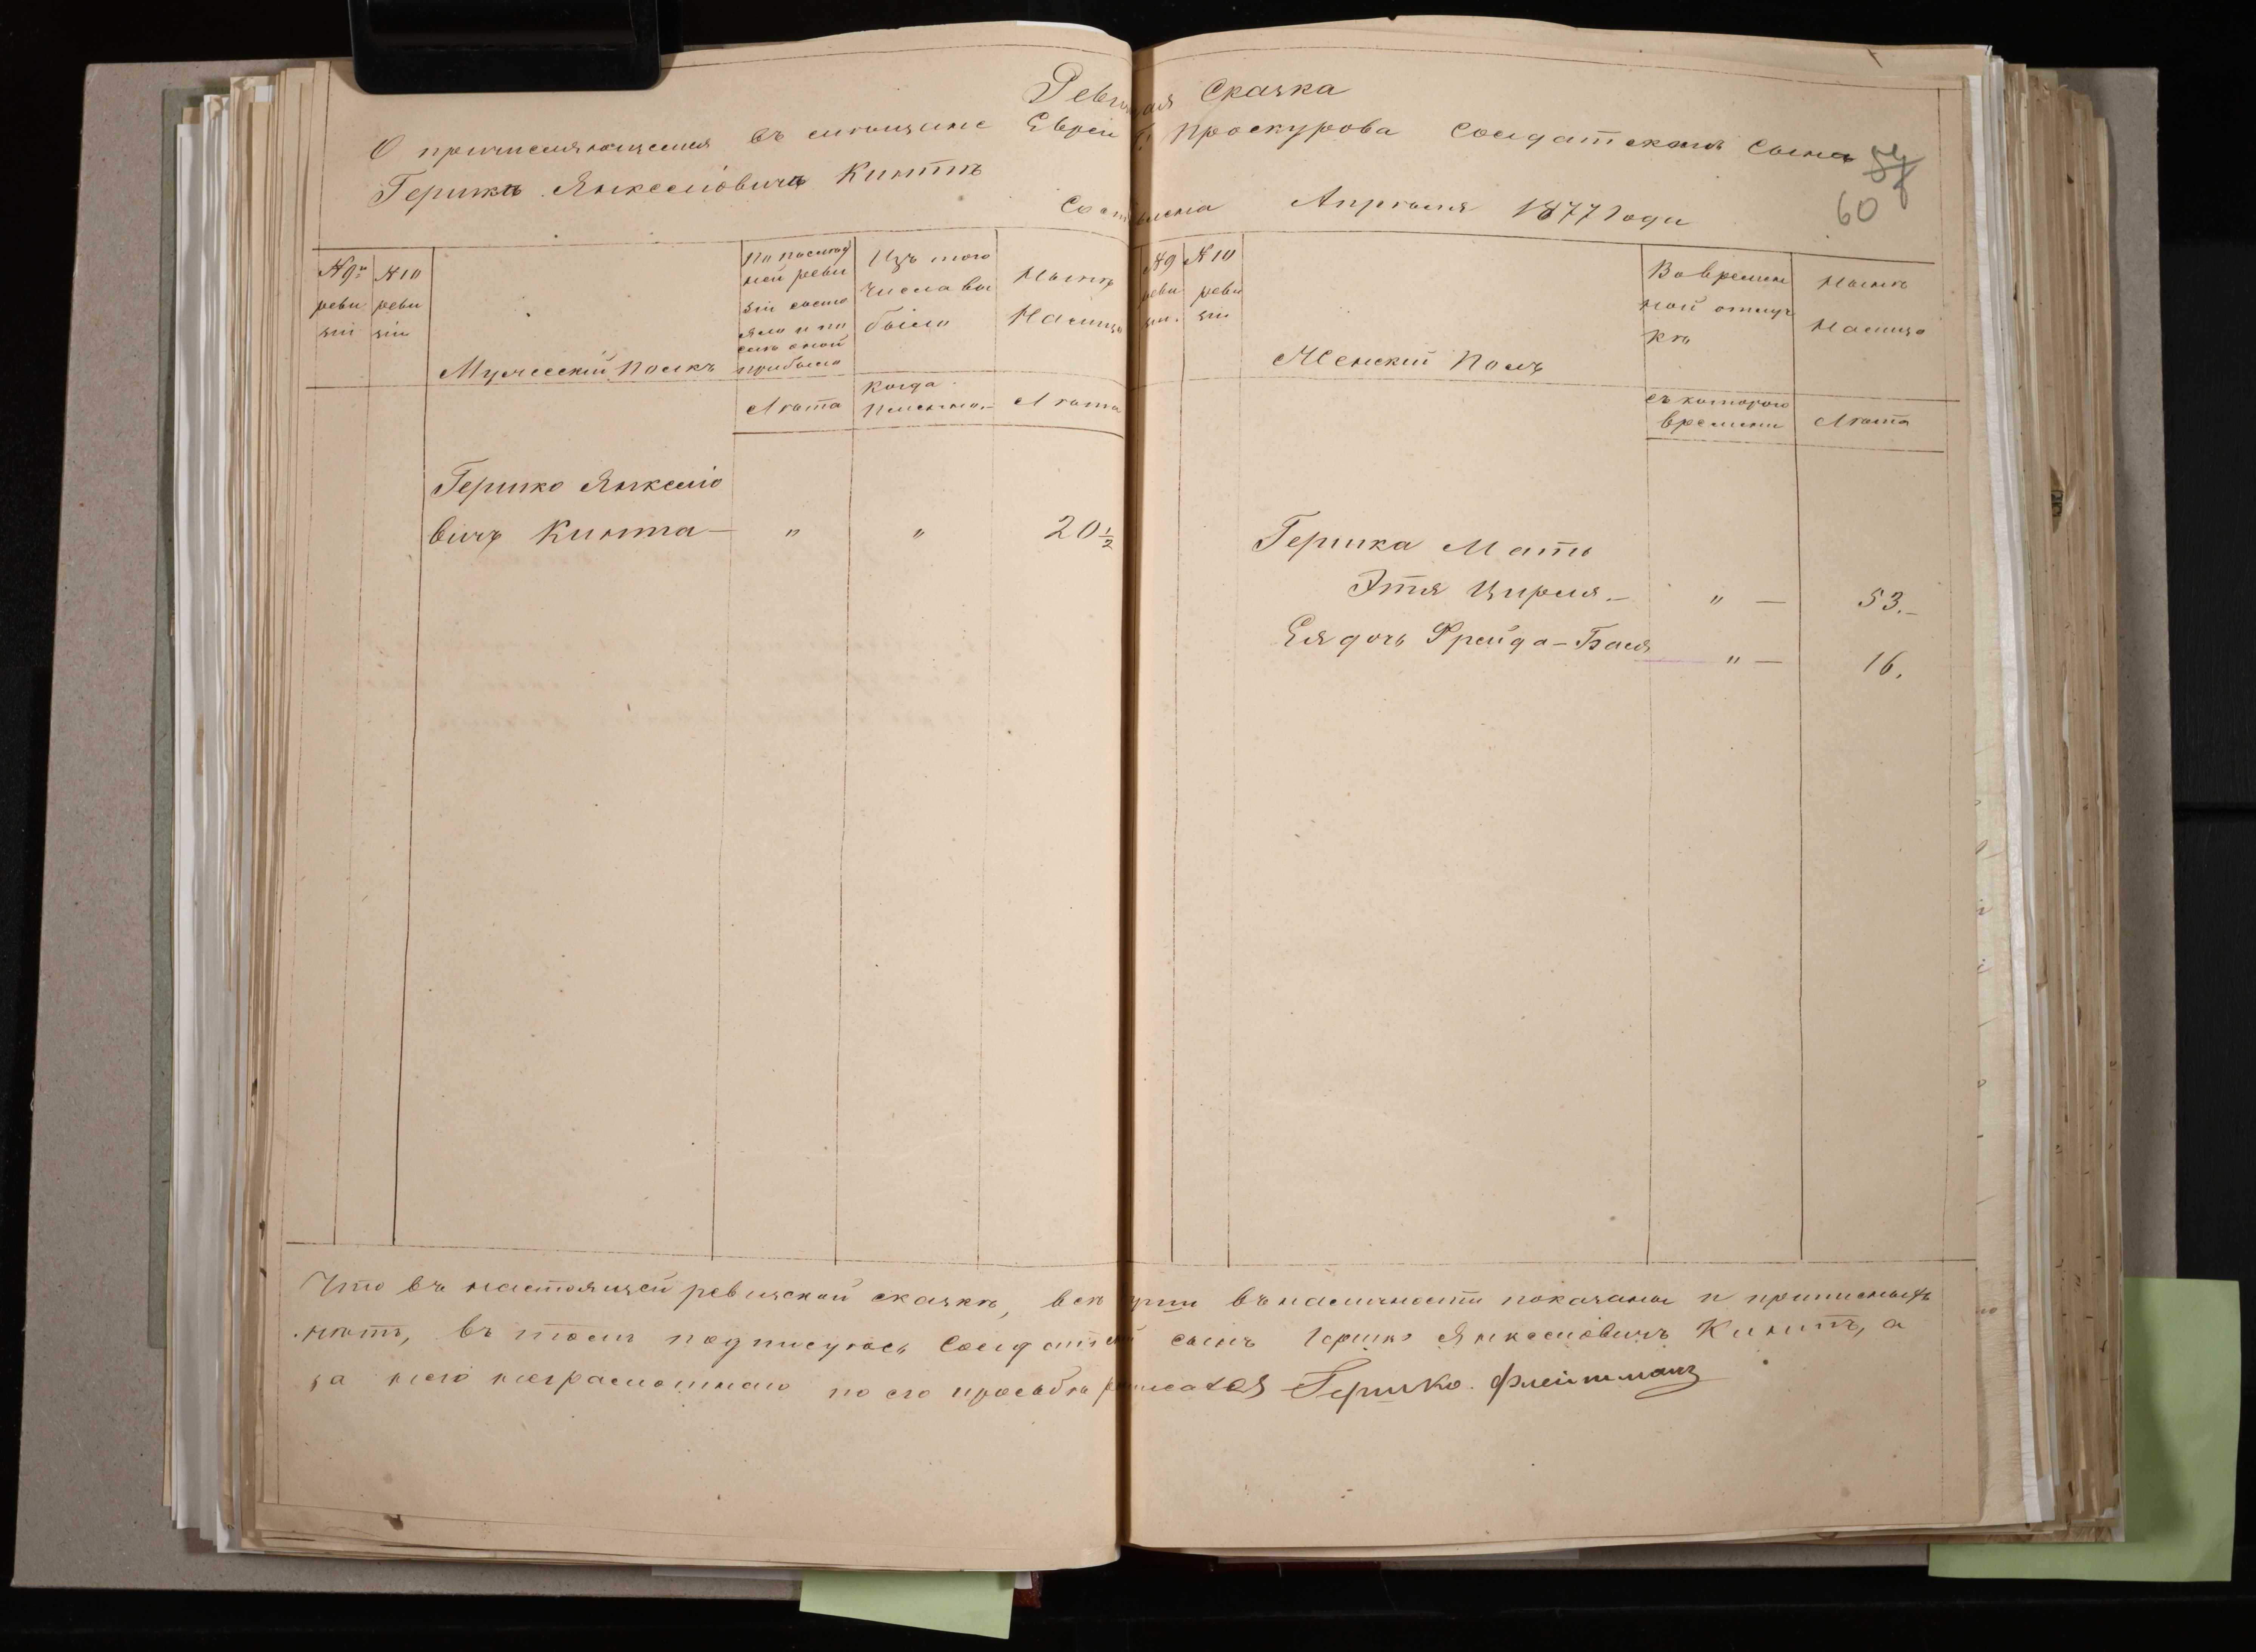 Ревизская Сказка
О причисляющемся въ мещане Евреи г. Проскурова Солдатскомъ Сыне
Гершкѣ Янкеліовичѣ Кинтѣ
60
Составлена Апреля 1877 года
№ 9й ревизіи
№ 10 ревизіи
Мужеский полъ
По последней ревизіи состояло и после оной прибыло
Лета
Изъ того числа выбыло
Когда именно
Ныне на лицо
Лета
№ 9 ревизіи
№ 10 ревизіи
Женский Полъ
Во временной отлучке
съ которого времени
Ныне на лицо
Лета
Гершко Янкеліо
вичъ Кинта — " " 20 1/2
Гершка Мать
Этя Цирля — " — 53.—
Ея дочь Фрейда-Бася " — 16.
Что въ настоящей ревизской сказкѣ, всѣ души въ наличности показаны и прописныхъ
нѣтъ, въ томъ подписуюсь Солдатский сынъ Гершко Янкеліовичъ Кинтъ, а
за него неграмотнаго по его просьбѣ росписался Гершко Флейтманъ